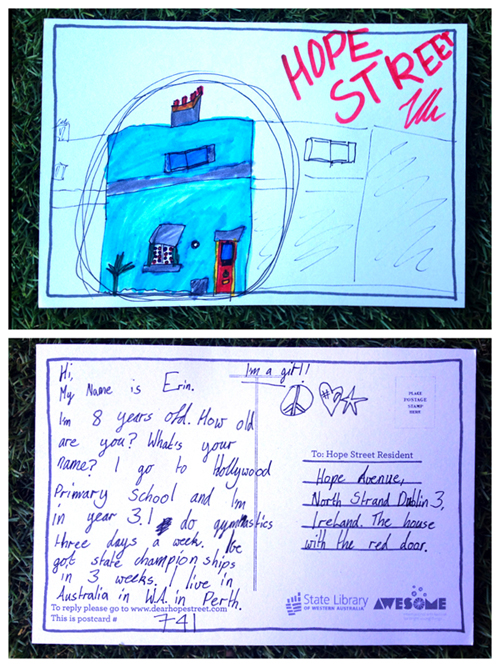 HOPE
STREET
Hi,
My Name is Erin.
I'm 8 years old. How old
are you? What's your
name? I go to hollywood
Primary School and Im
in year 3. I do gymnastics
three days a week. I've
got state champion ships
in 3 weeks. I live in
Australia in W.A. in Perth.
To reply please go to www.dearhopestreet.com
This is postcard #
741
Im a girl!
PLACE
POSTAGE
STAMP
HERE
To: Hope Street Resident
Hope Avenue,
North Strand Dublin 3,
Ireland. The house
with the red door.
State Library
OF WESTERN AUSTRALIA
AWESOME